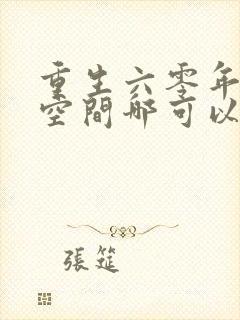 重生六零年
空間哪可以
張筵